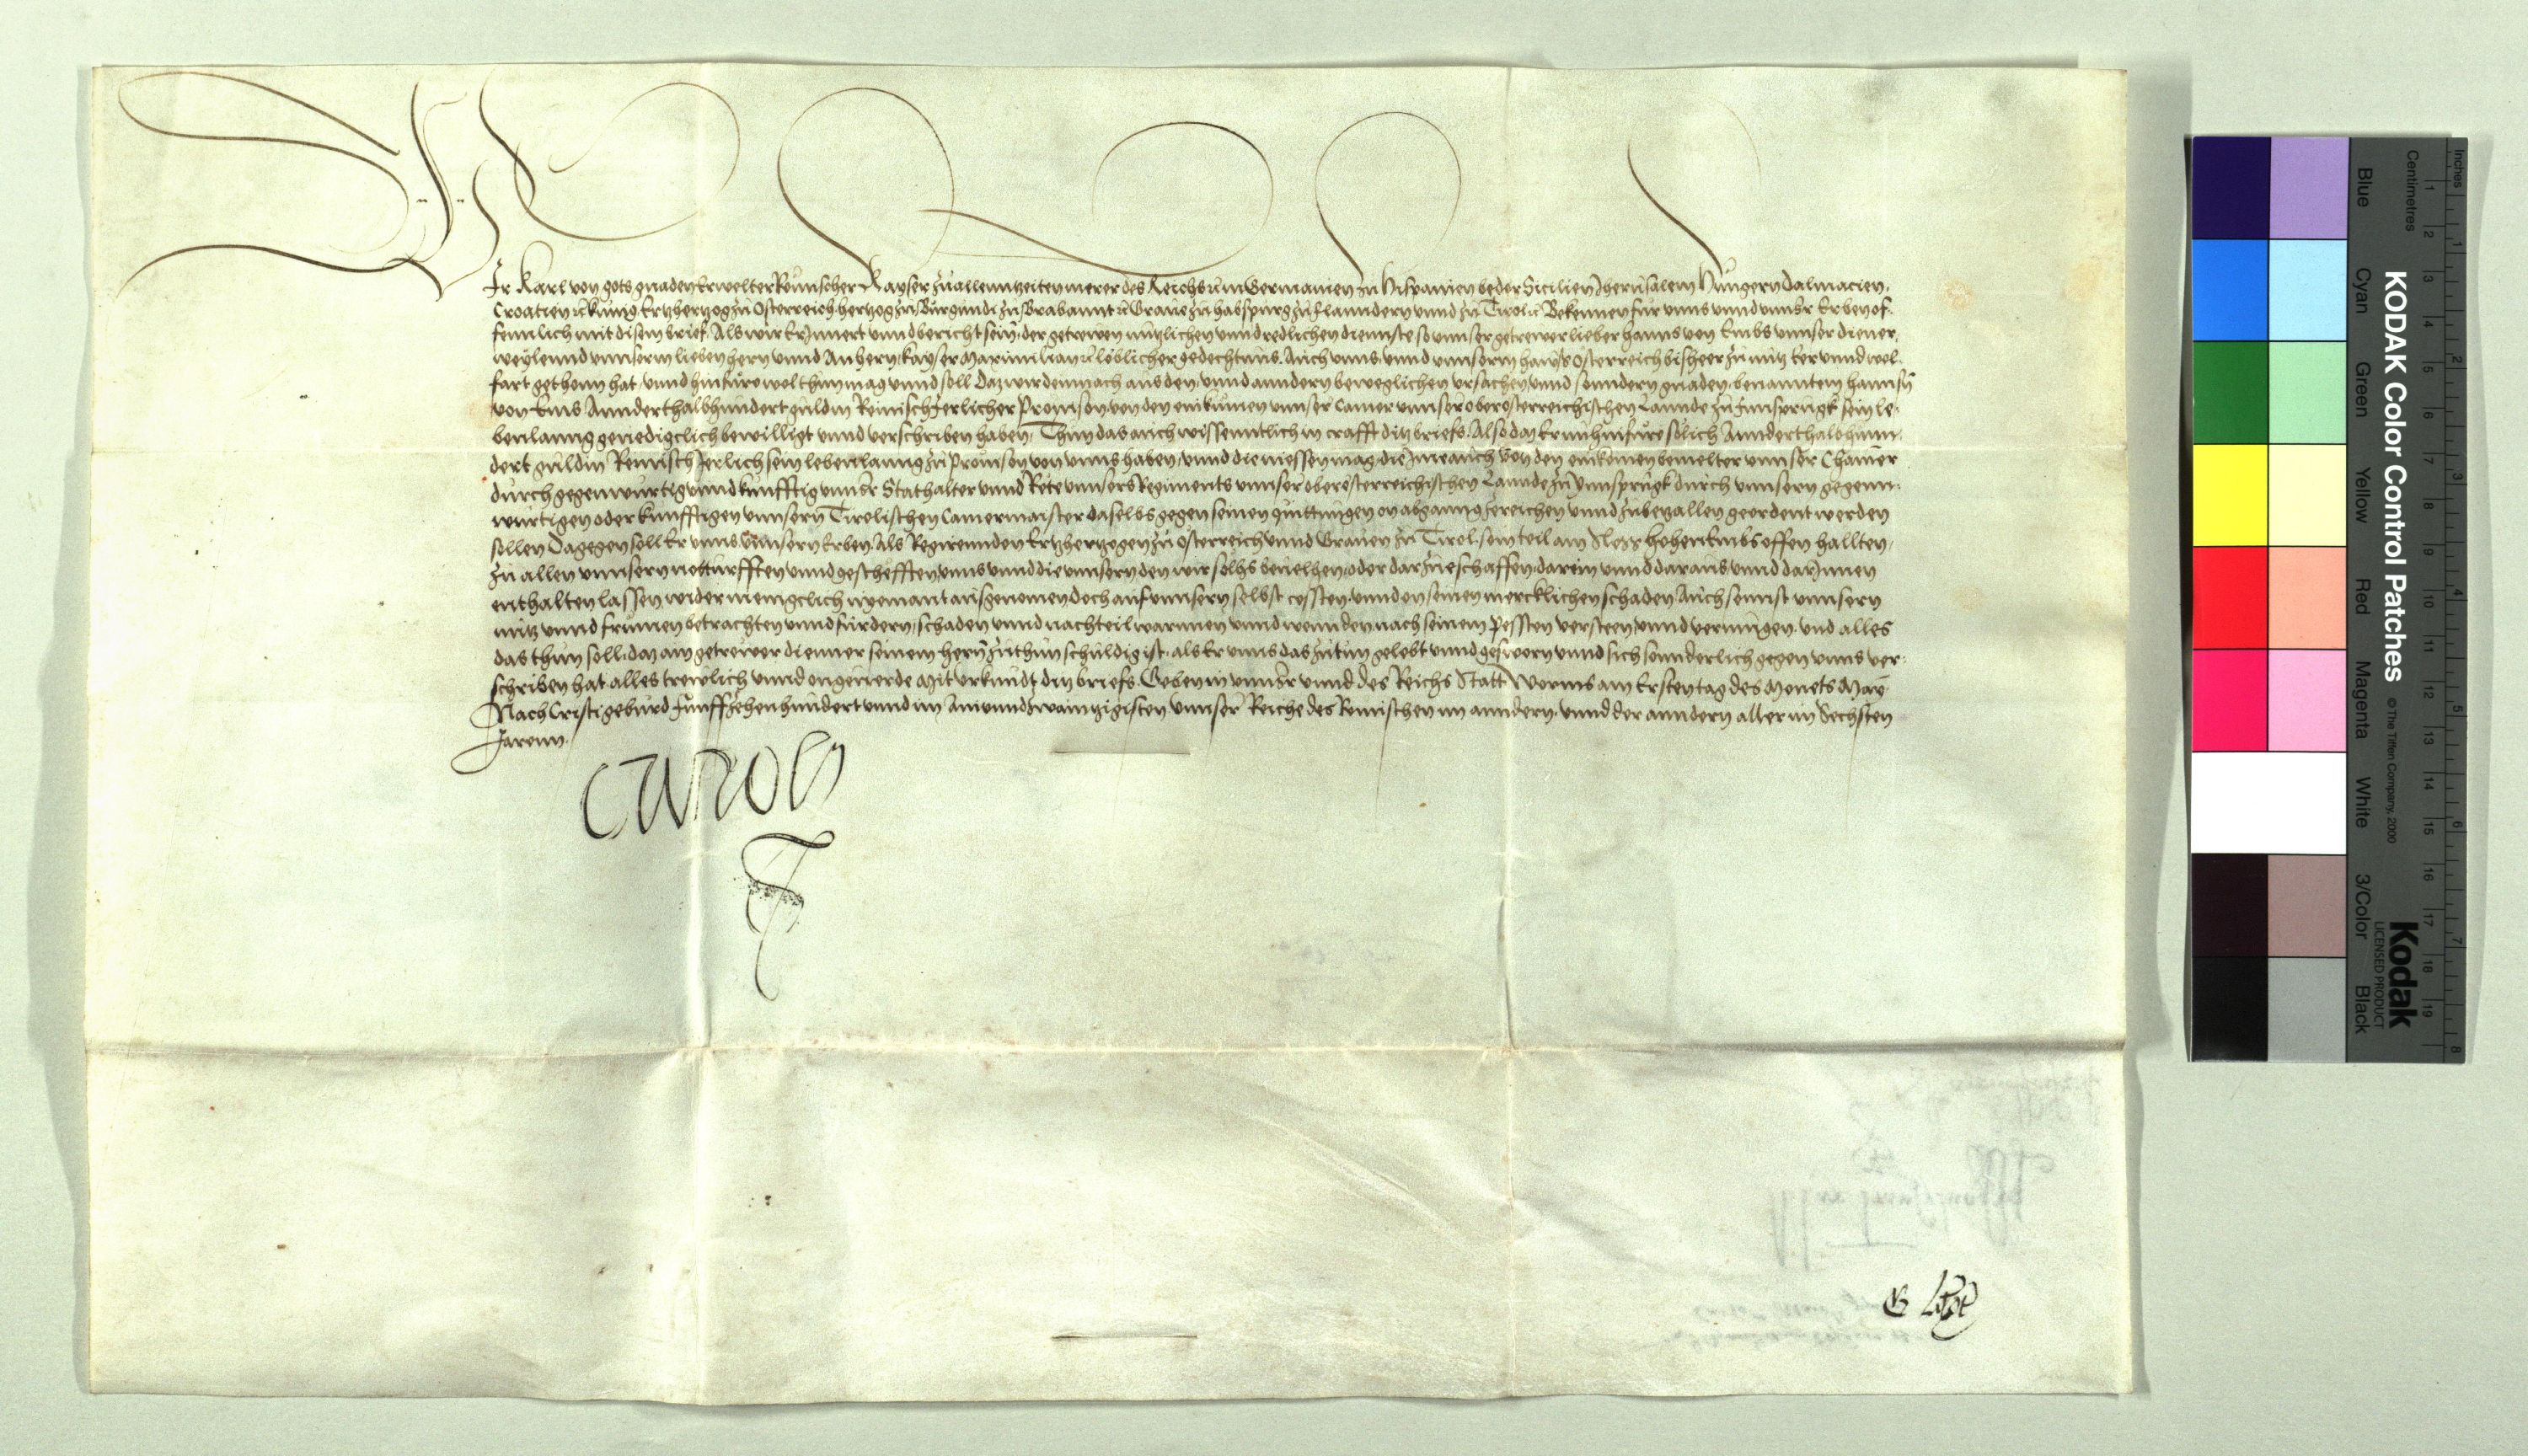 Wir Karl von gots gnaden Erwelter Römischer Kayser zuallenntzeiten merer des Reichs u̅ in Germanien zu Hispanien beder Sicilien Jherusalem Hungern Dalmacien,
Croatien u̅ Kunig Ertzhertzog zu Osterreich hertzog zu Burgundi zu Brabannt u̅ Graue zu habspurg zu Flanndern vnnd zu Tirol u̅ Bekennen fur vnns vnnd vnnser Erben of-
fennlich mit disem brief. Als wir Erynnert vnnd bericht sein, der getrewen nutzlichen vnnd redlichen diennste so vnnser getrewer lieber hanns von Embs vnnser diener,
weylennd vnnserm lieben hern vnnd Anhern, kayser Maximilian u̅ löblicher gedechtnus. Auch vnns, vnnd vnnserm haws Osterreich bisheer zu nutz Eer vnnd wol-
fart gethonn hat, vnnd hinfuro wol thun mag vnnd soll Daz wir demnach aus den, vnnd anndern beweglichen vrsachen, vnnd sonndern gnaden, benanntem hannsn̅
von Embs Annderthalbhundert guldin Reinisch Jerlicher Prouison, von den einkumen vnnser Camer vnnser oberosterreichischen Lannde zu Innsprugk sein le-
benlanng genedigclich bewilligt vnnd verschriben haben, Thun das auch wissenntlich in crafft ditz briefs. Also daz Er nu hinfuro solich Annderthalbhunn-
dert guldin Reinisch Jerlich sein lebenlanng zu Prouison von vnns haben, vnnd die niessen mag, die Ime auch von den einkomen bemelter vnnser Chamer
durch gegenwurtig vnnd kunfftig vnnser Stathalter vnnd Rete vnnsers Regiments vnnser oberösterreichischen Lannde zu Ynnsprugk durch vnnsern gegenn-
wurtigen oder kunfftigen vnnsern Tirolischen Camermaister daselbs gegen seinen quittungen on abganng zereichen vnnd zubezallen geordent werden
sollen Dagegen soll Er vnns, vnnsern Erben, Als Regierennden Ertzhertzogen zu Osterreich vnnd Grauen zu Tirol, sein teil am Sloss hohen Embs offen hallten,
zu allen vnnsern notturfften vnnd geschefften, vnns vnnd die vnnsern den wir solhs beuelhen, oder darzue schaffen, darein vnnd daraus vnnd darynnen
enthalten lassen wider menigclich nyemant ausgenomen doch auf vnnsern selbst cossten, vnnd on seinen mercklichen schaden Auch sonnst vnnsern
nutz vnnd frumen betrachten vnnd furdern, schaden vnnd nachteil warnnen vnnd wennden nach seinem pessten versteen vnnd vermugen, vnd alles
das thun soll, daz ain getrewer diener seinem hern zuthun schuldig ist, als Er vnns das zutun gelobt vnnd gesworn vnnd sich sonnderlich gegen vnns ver-
schriben hat alles trewlich vnnd ongeuerde Mit vrkundt ditz briefs. Geben in vnnser vnnd des Reichs Statt Worms am Ersten tag des Monets May
Nach Cristi geburd funffzehenhundert vnnd im Ainundzwaintzigisten vnnser Reiche des Romischen im anndern, vnnd der anndern aller im Sechsten
Jarenn.
Carolus
KODAK Color Control Patches © The Tiffen Company, 2000
Kodak
LICENSED PRODUCT
Inches
Centimetres
Blue
Cyan
Green
Yellow
Red
Magenta
White
3/Color
Black
1 2 3 4 5 6 7 8 9 10 11 12 13 14 15 16 17 18 19
1 2 3 4 5 6 7 8